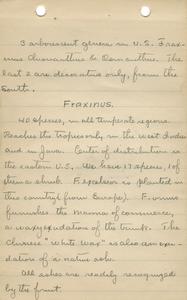 3 arborescent genera in U.S. Frax-
inus Chionanthus & Osmanthus. The
last 2 are decorative only, from the
South.
Fraxinus.
40 species, in all temperate regions.
Reaches the tropics only in the West Indies
and in Java. Center of distribution is
the eastern U.S. We have 17 species, 1 of
them a shrub. F. excelsior is planted in
this country (from Europe). F. ornus
furnishes the Manna of commerce,
a waxy exudation of the trunk. The
Chinese "White Wax" is also an exu-
dation of a native ash.
All ashes are readily recognized
by the fruit.